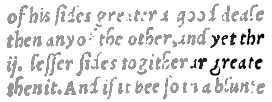 of his sides greater a good deale
then any of the other, and yet thr
ij. lesser sides togither ar greate
then it. And if it bee so in a blunte